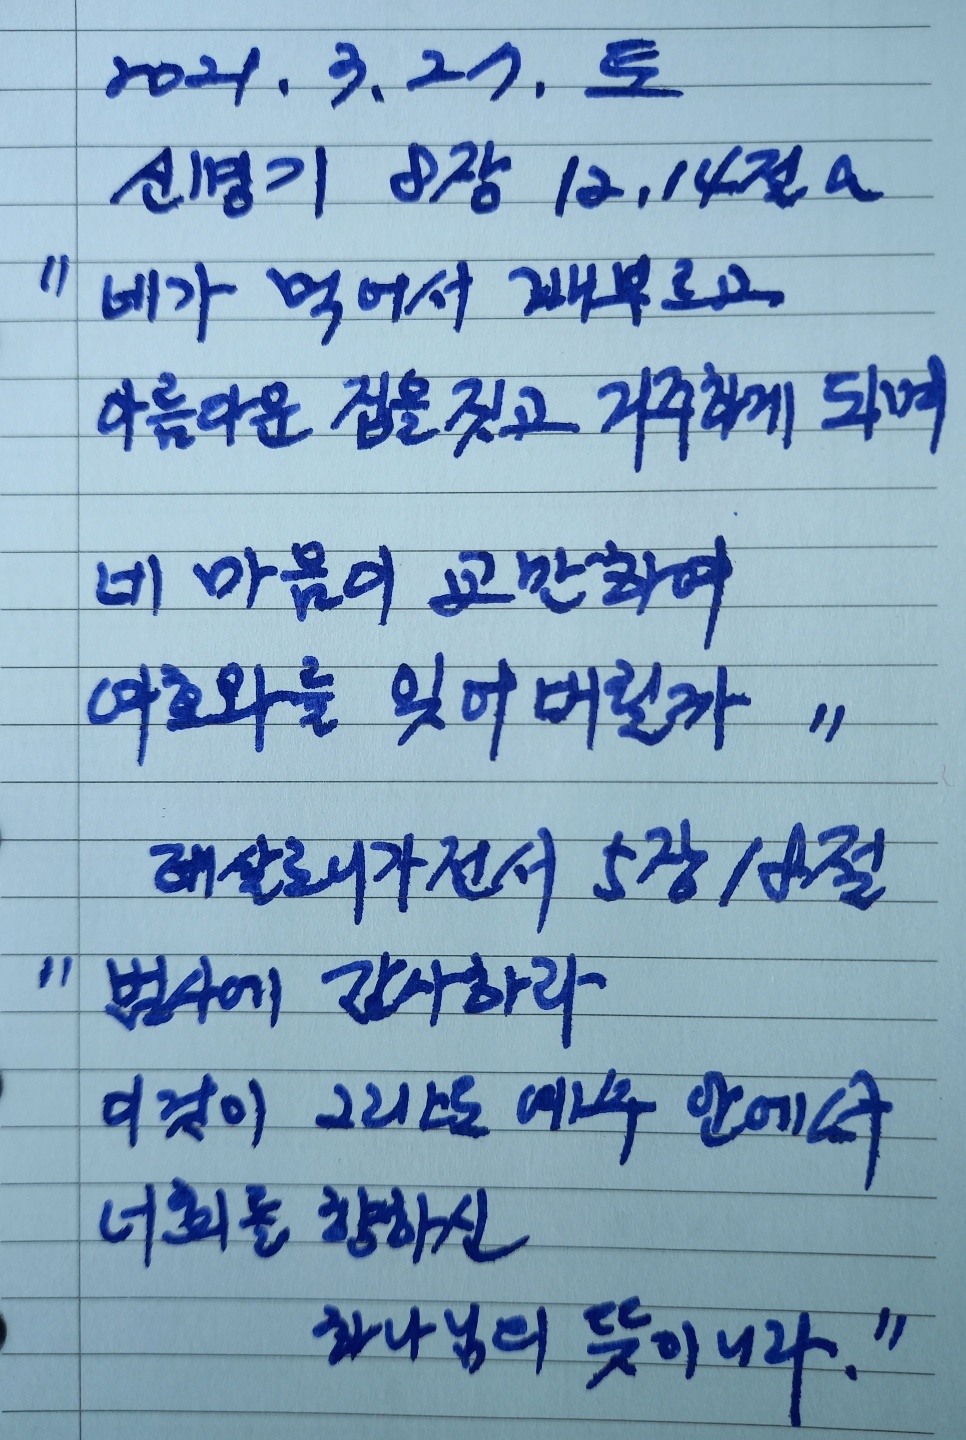 2021. 3. 27. 토
신명기 8장 12,14절 a
"네가 먹어서 배부르고
아름다운 집을 짓고 거주하게 되며
네 마음이 교만하여
여호와를 잊어버릴까"
데살로니가전서 5장 18절
"범사에 감사하라
이것이 그리스도 예수 안에서
너희를 향하신
하나님의 뜻이니라."